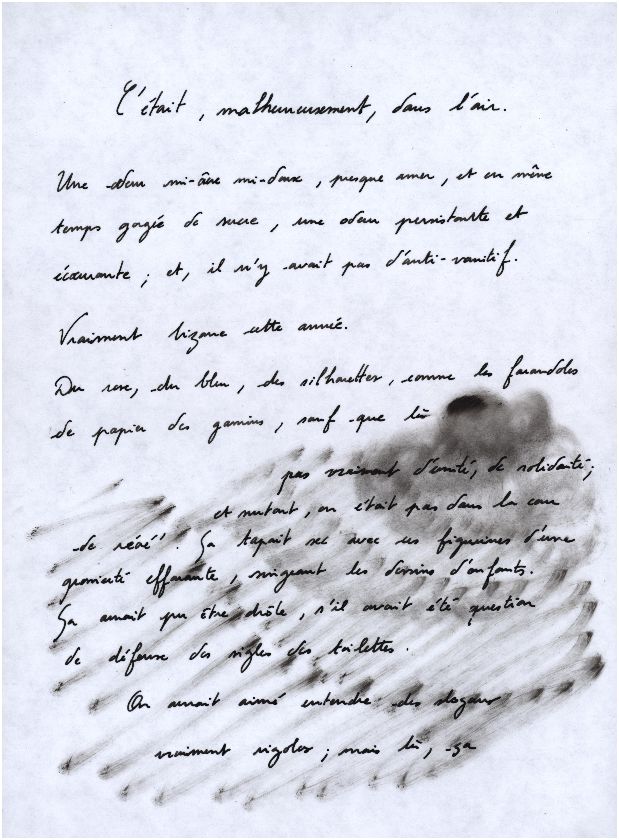 C'était, malheureusement, dans l'air.
Une odeur mi-âcre mi-douce, presque amer, et en même
temps gorgée de sucre, une odeur persistante et
écœurante ; et, il n'y avait pas d'anti-vomitif.
Vraiment bizarre cette année.
Du rose, du bleu, des silhouettes, comme les farandoles
de papier des gamins, sauf que là
pas vraiment d'unité, de solidarité ;
et surtout, on était pas dans la cour
de récré. Ça tapait sec avec ces figurines d'une
grossièreté effarante, singeant les dessins d'enfants.
Ça aurait pu être drôle, s'il avait été question
de défense des sigles des toilettes.
On aurait aimé entendre des slogans
vraiment rigolos ; mais là, ça